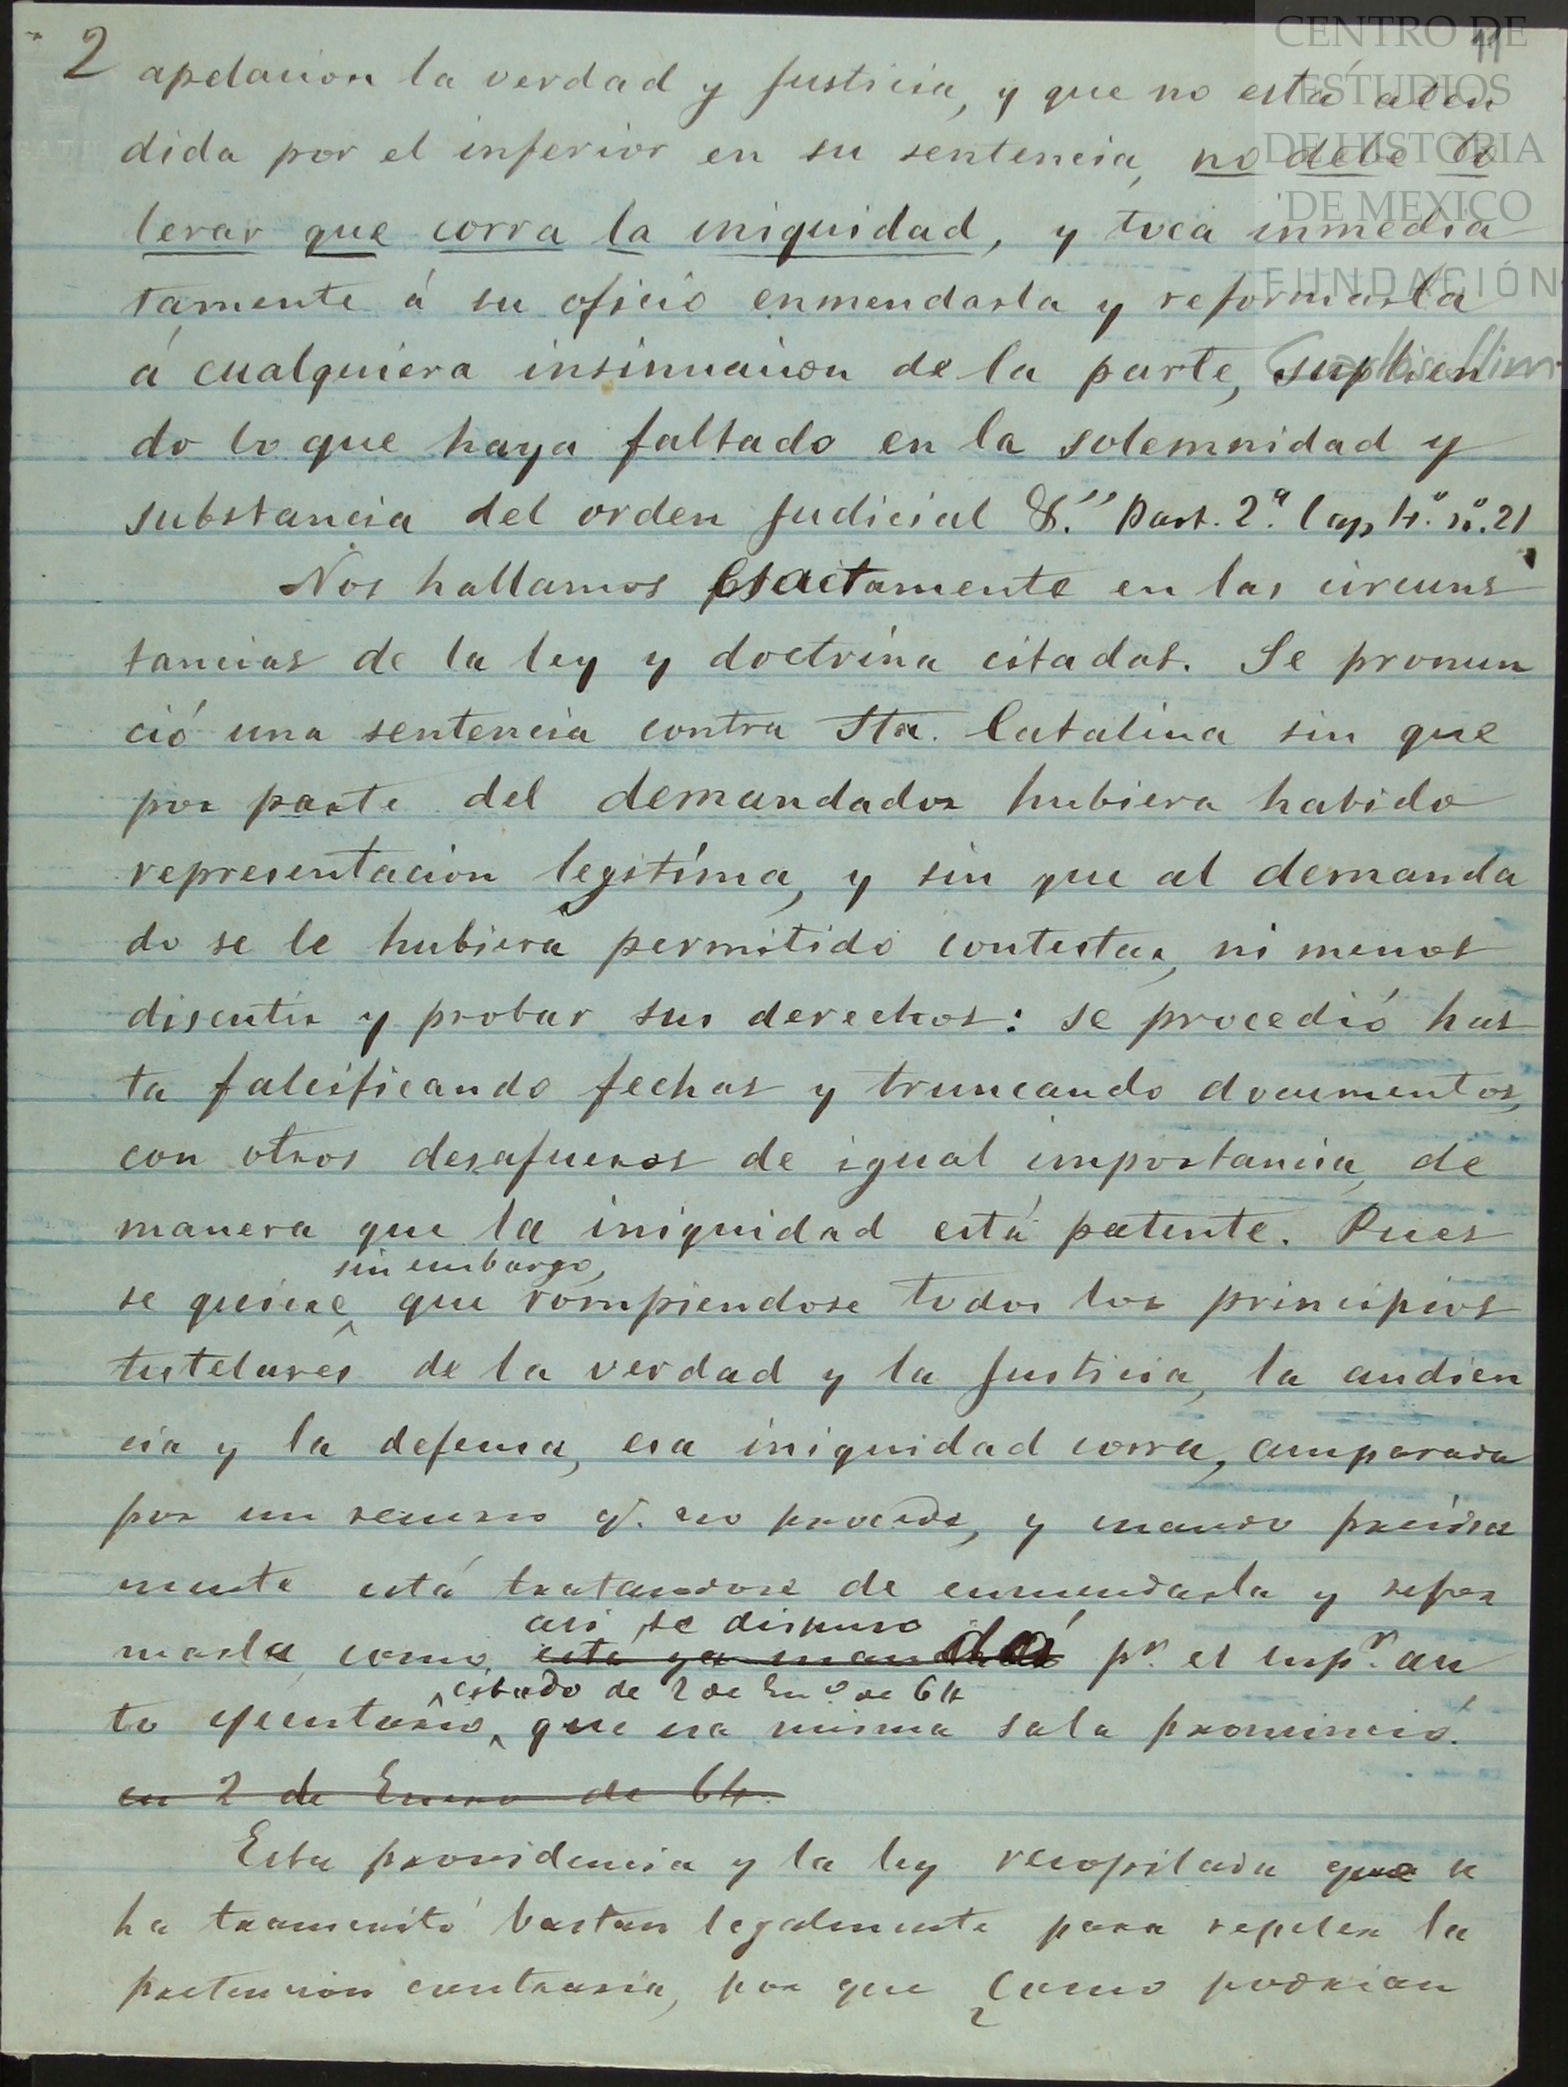 2 apelacion la verdad y justicia, y que no está aten
dida por el inferior en su sentencia, no debe to
lerar que corra la iniquidad, y toca inmedia
tamente á su oficio enmendarla y reformarla
á cualquiera insinuacion de la parte, suplien
do lo que haya faltado en la solemnidad y
substancia del orden judicial &." Part. 2.ª Cap 4.º n.º 21
Nos hallamos esactamente en las circuns
tancias de la ley y doctrina citadas. Se pronun
ció una sentencia contra Sta. Catalina sin que
por parte del demandador hubiera habido
representacion legitima, y sin que al demanda
do se le hubiera permitido contestar, ni menos
discutir y probar sus derechos: se procedió has
ta falsificando fechas y truncando documentos,
con otros desafueros de igual importancia, de
manera que la iniquidad está patente. Pues
sin embargo,
se quiere que rompiendose todos los principios
tutelares de la verdad y la justicia, la audien
cia y la defensa, esa iniquidad corra, amparada
por un recurso q. no procede, y cuando precisa
mente está tratandose de enmendarla y refor
asi se dispuso
marla, como está ya mandado pr. el supr. au
citado de 2 de En.º de 64
to ejecutorio, que esa misma sala pronunció.
en 2 de Enero de 64.
Esta providencia y la ley recopilada que se
ha transcrito bastan legalmente para repeler la
pretencion contraria, por que ¿como podrian
CENTRO DE
ESTUDIOS
DE HISTORIA
DE MEXICO
FUNDACIÓN